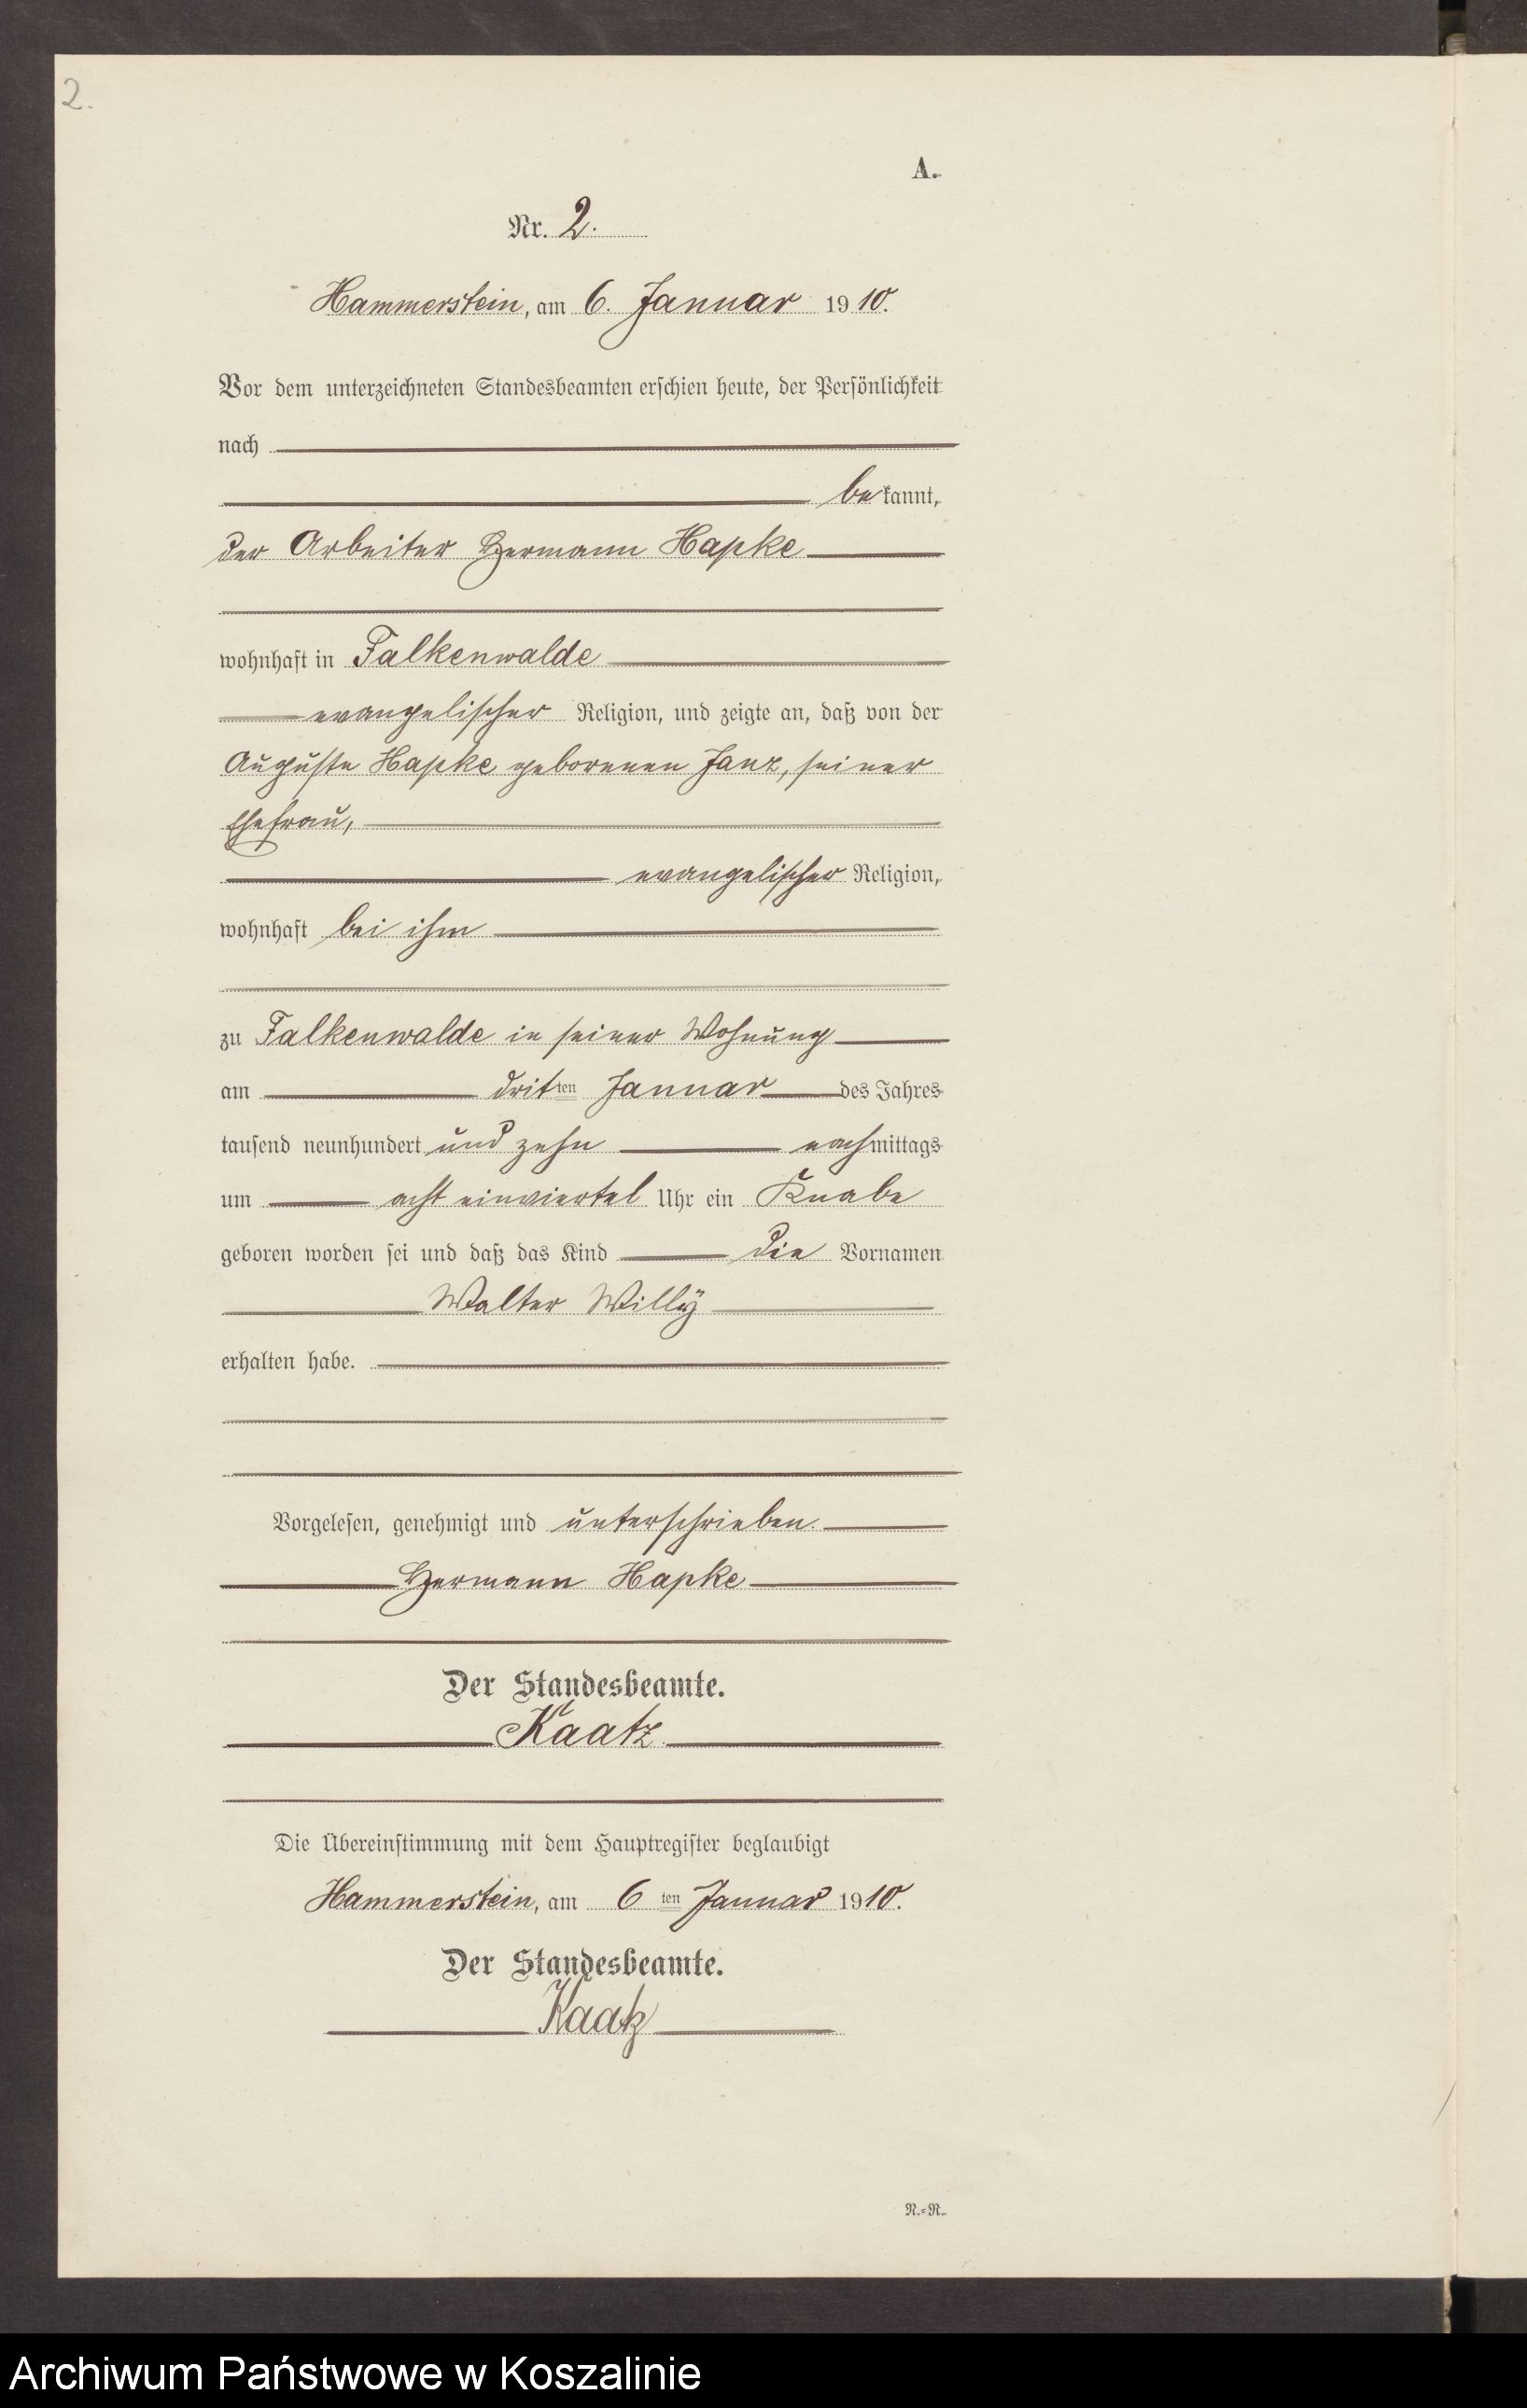 2.
A.
Nr. 2.
Hammerstein, am 6. Januar 1910.
Vor dem unterzeichneten Standesbeamten erschien heute, der Persönlichkeit
nach
bekannt,
der Arbeiter Hermann Hapke
wohnhaft in Falkenwalde
evangelischer Religion, und zeigte an, daß von der
Auguste Hapke geborenen Janz, seiner
Ehefrau,
evangelischer Religion,
wohnhaft bei ihm
zu Falkenwalde in seiner Wohnung
am dritten Januar des Jahres
tausend neunhundert und zehn nachmittags
um acht einviertel Uhr ein Knabe
geboren worden sei und daß das Kind die Vornamen
Walter Willÿ
erhalten habe.
Vorgelesen, genehmigt und unterschrieben.
Hermann Hapke
Der Standesbeamte.
Kaatz.
Die Übereinstimmung mit dem Hauptregister beglaubigt
Hammerstein, am 6ten Januar 1910.
Der Standesbeamte.
Kaatz
N.-R.
Archiwum Państwowe w Koszalinie